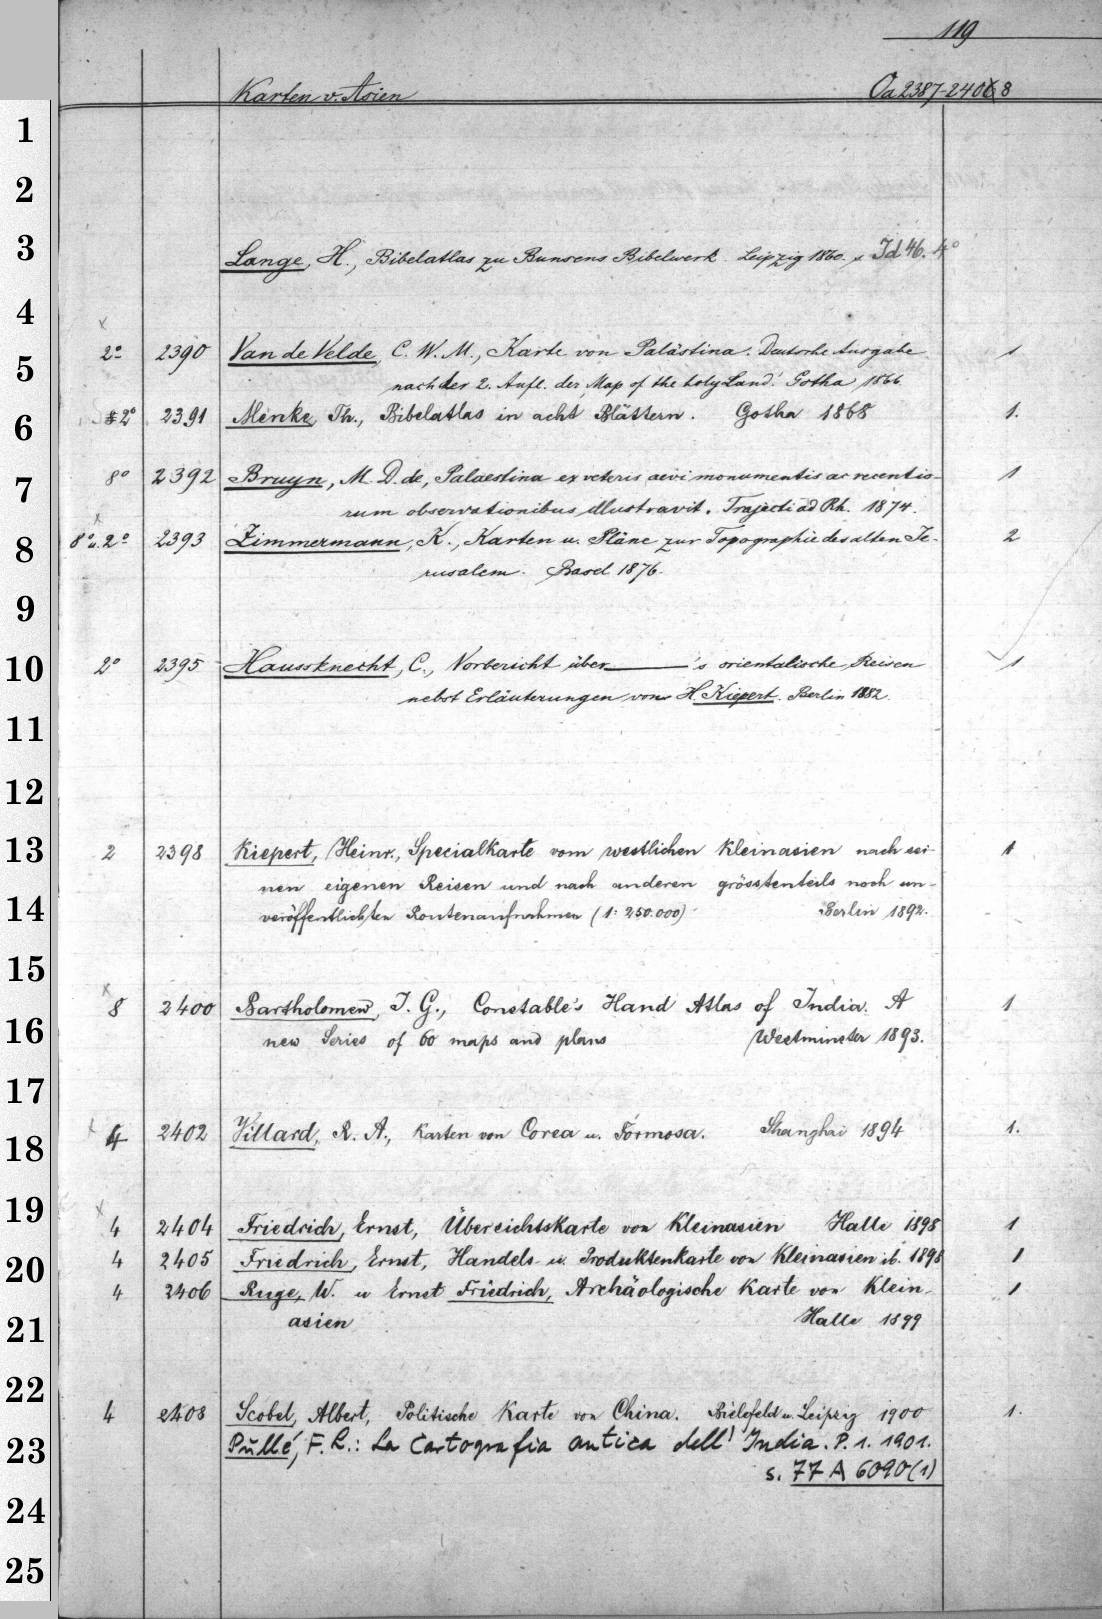 119
Karten v. Asien Oa 2387-2408
1
2
3 Lange, H., Bibelatlas zu Bunsens Bibelwerk. Leipzig 1860. Id 46. 4°
4
2° 2390 Van de Velde, C. W. M., Karte von Palästina. Deutsche Ausgabe 1
5 nach der 2. Aufl. der „Map of the holy Land.“ Gotha 1866.
6 2° 2391 Menke, Th., Bibelatlas in acht Blättern. Gotha 1868 1.
7 8° 2392 Bruyn, M. D. de, Palaestina ex veteris aevi monumentis ac recentio- 1
rum observationibus illustravit. Trajecti ad Rh. 1874.
8 8° u. 2° 2393 Zimmermann, K., Karten u. Pläne zur Topographie des alten Je- 2
rusalem. Basel 1876.
9
10 2° 2395 Haussknecht, C., Vorbericht über ———'s orientalische Reisen 1
nebst Erläuterungen von H. Kiepert. Berlin 1882.
11
12
13 2 2398 Kiepert, Heinr., Specialkarte vom westlichen Kleinasien nach sei- 1
nen eigenen Reisen und nach anderen grösstenteils noch un-
14 veröffentlichten Routenaufnahmen (1:250.000) Berlin 1892.
15
8 2400 Bartholomew, J. G., Constable's Hand Atlas of India. A 1
16 new Series of 60 maps and plans Westminster 1893.
17
18 4 2402 Villard, R. A., Karten von Corea u. Formosa. Shanghai 1894 1.
19 4 2404 Friedrich, Ernst, Übersichtskarte von Kleinasien Halle 1898 1
20 4 2405 Friedrich, Ernst, Handels- u. Produktenkarte von Kleinasien ib. 1898 1
4 2406 Ruge, W. u Ernst Friedrich, Archäologische Karte von Klein- 1
21 asien Halle 1899
22
4 2408 Scobel, Albert, Politische Karte von China. Bielefeld u. Leipzig 1900 1.
23 Pullé, F. L.: La Cartografia antica dell' India. P. 1. 1901.
s. 77 A 6090(1)
24
25